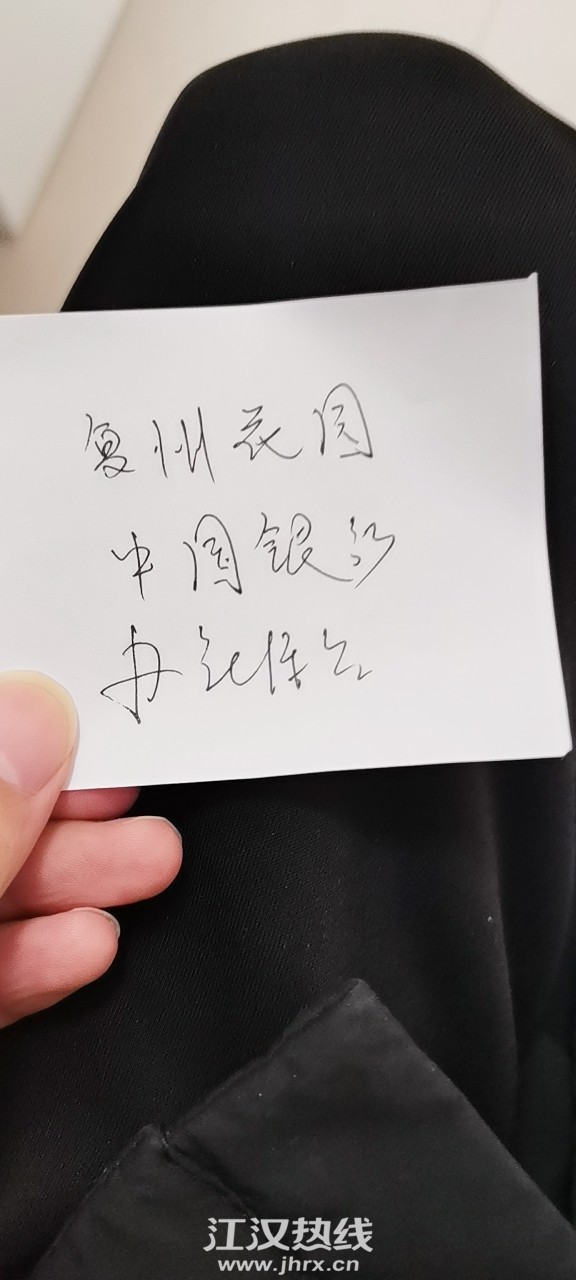 复州花园
中国银行
江汉热线
www.jhrx.cn